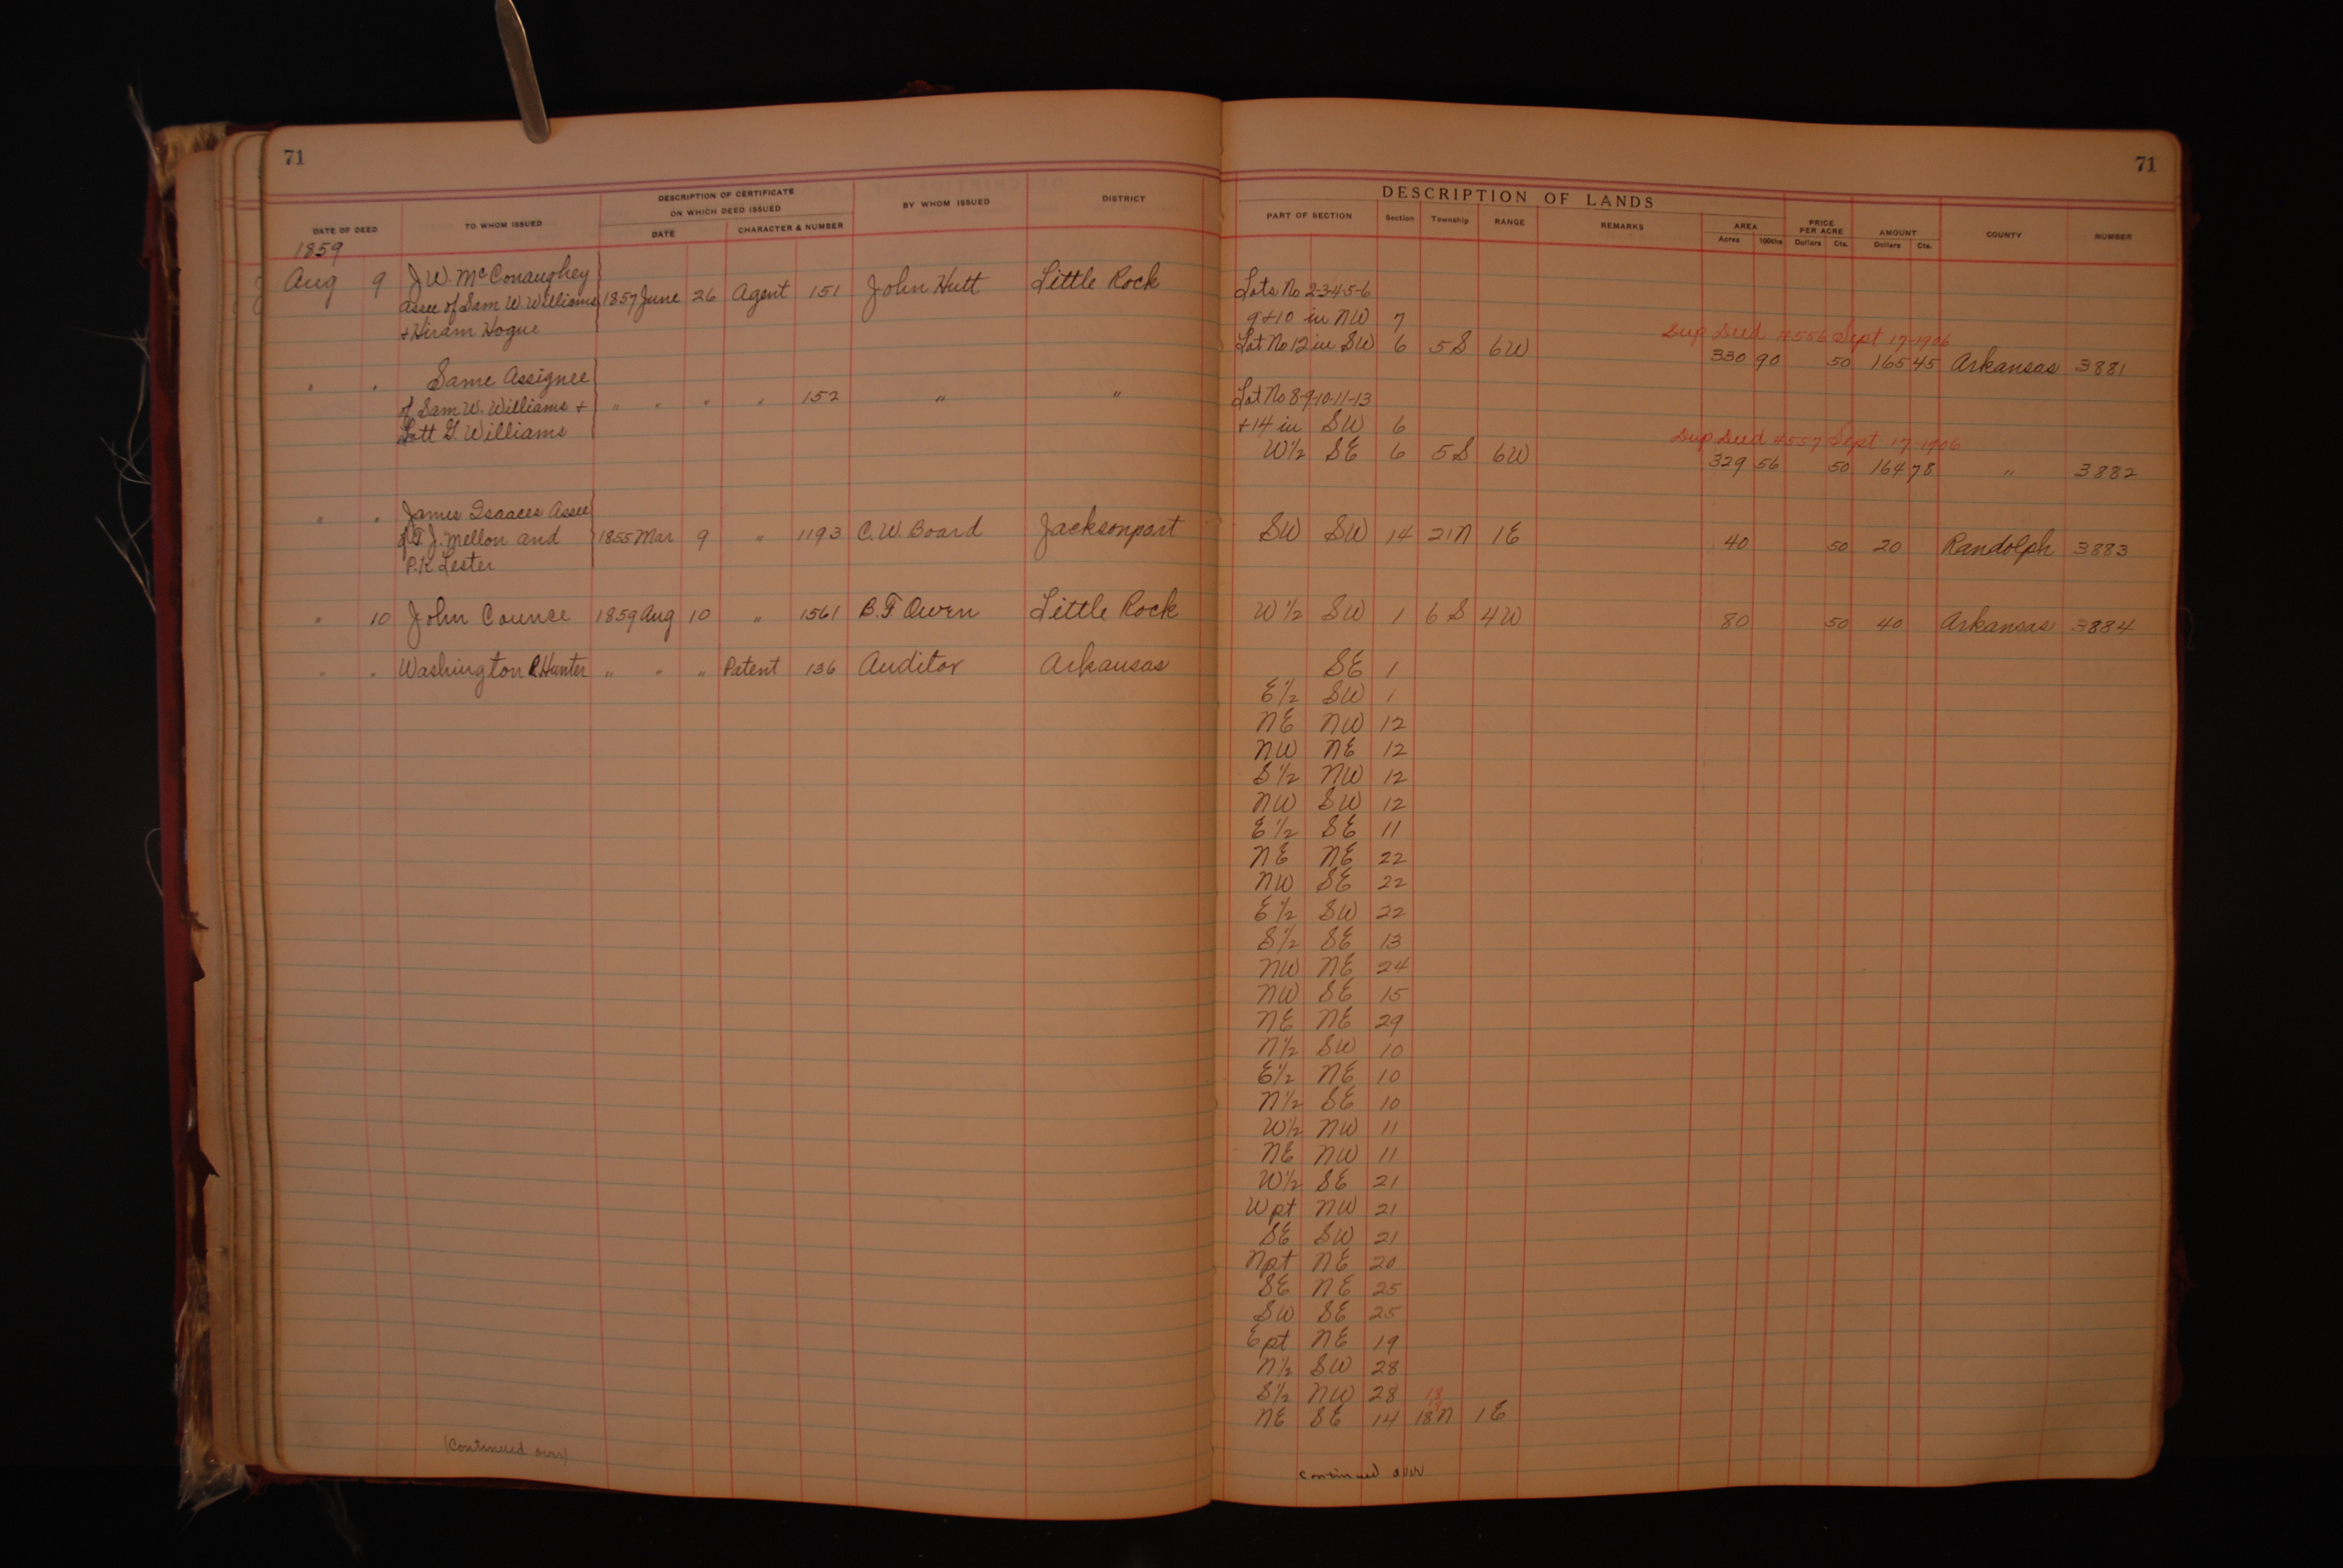 71
DATE OF DEED
TO WHOM ISSUED
DESCRIPTION OF CERTIFICATE
ON WHICH DEED ISSUED
DATE
CHARACTER & NUMBER
BY WHOM ISSUED
DISTRICT
1859
Aug 9 J W. McConaughey
assee of Sam W. Williams 1857 June 26 Agent 151 John Hutt Little Rock
+ Hiram Hogue
" " Same Assignee
of Sam W. Williams + " " " " 152 " "
Lott G. Williams
" " James Isaacs Assee
of T. J. Mellon and 1855 Mar 9 " 1193 C. W. Board Jacksonport
P. K Lester
" 10 John Counce 1859 Aug 10 " 1561 B. F Owen Little Rock
" " Washington R. Hunter " " " Patent 136 Auditor Arkansas
(Continued over)
71
DESCRIPTION OF LANDS
PART OF SECTION
Section
Township
RANGE
REMARKS
AREA
Acres 100ths
PRICE
PER ACRE
Dollars Cts.
AMOUNT
Dollars Cts.
COUNTY
NUMBER
Lots No 2-3-4-5-6
9+10 in NW 7
Dup Deed #556 Sept 17-1906
Lot No 12 in SW 6 5S 6W 330 90 50 165 45 Arkansas 3881
Lot No 8-9-10-11-13
+14 in SW 6
Dup Deed #557 Sept 17-1906
W½ SE 6 5S 6W 329 56 50 164 78 " 3882
SW SW 14 21N 1E 40 50 20 Randolph 3883
W½ SW 1 6S 4W 80 50 40 Arkansas 3884
SE 1
E½ SW 1
NE NW 12
NW NE 12
S½ NW 12
NW SW 12
E½ SE 11
NE NE 22
NW SE 22
E½ SW 22
S½ SE 13
NW NE 24
NW SE 15
NE NE 29
N½ SW 10
E½ NE 10
N½ SE 10
W½ NW 11
NE NW 11
W½ SE 21
Wpt NW 21
SE SW 21
Npt NE 20
SE NE 25
SW SE 25
Ept NE 19
N½ SW 28
S½ NW 28 18
NE SE 14 18N 1E
Continued over